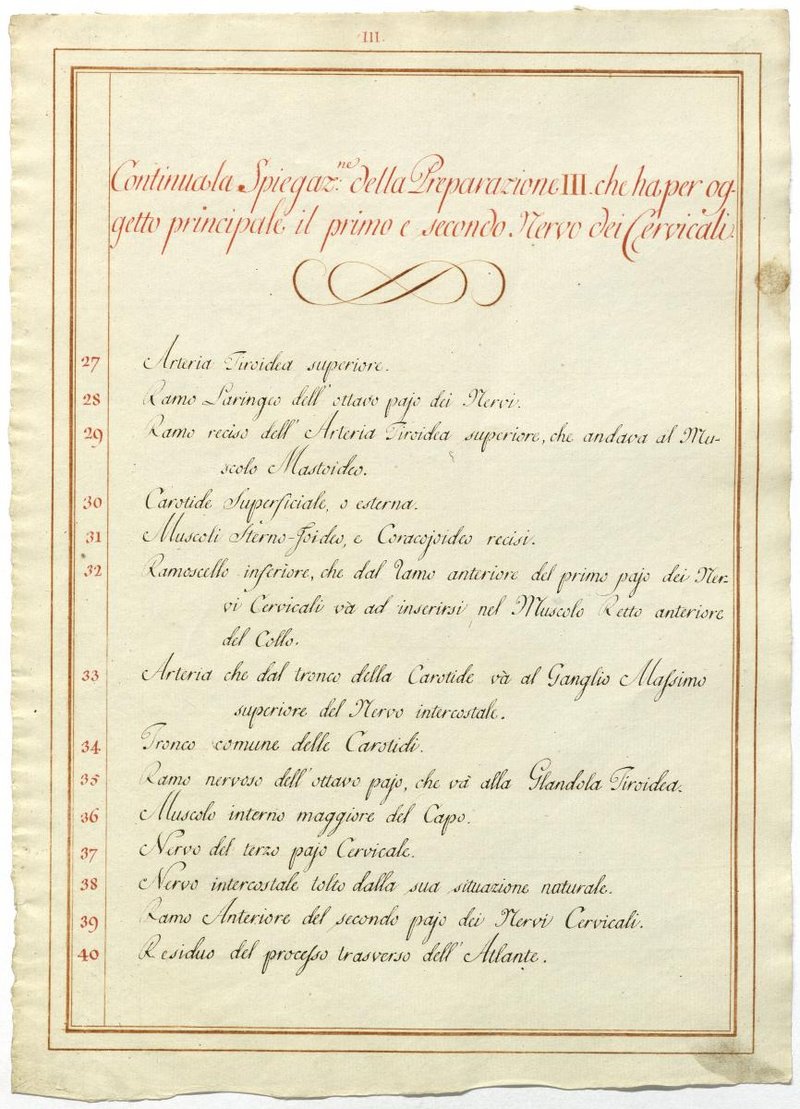 III.
Continua la Spiegaz.ne della Preparazione III. che ha per og-
getto principale il primo e secondo Nervo dei Cervicali.
27 Arteria Tiroidea superiore.
28 Ramo Laringeo dell' ottavo pajo dei Nervi.
29 Ramo reciso dell' Arteria Tiroidea superiore, che andava al Mu-
scolo Mastoideo.
30 Carotide Superficiale, o esterna.
31 Muscoli Sterno-Joideo, e Coracojoideo recisi.
32 Ramoscello inferiore, che dal Ramo anteriore del primo pajo dei Ner-
vi Cervicali và ad inserirsi nel Muscolo Retto anteriore
del Collo.
33 Arteria che dal tronco della Carotide và al Ganglio Maſsimo
superiore del Nervo intercostale.
34 Tronco comune delle Carotidi.
35 Ramo nervoso dell' ottavo pajo, che và alla Glandola Tiroidea.
36 Muscolo interno maggiore del Capo.
37 Nervo del terzo pajo Cervicale.
38 Nervo intercostale tolto dalla sua situazione naturale.
39 Ramo Anteriore del secondo pajo dei Nervi Cervicali.
40 Residuo del proceſso trasverso dell' Atlante.